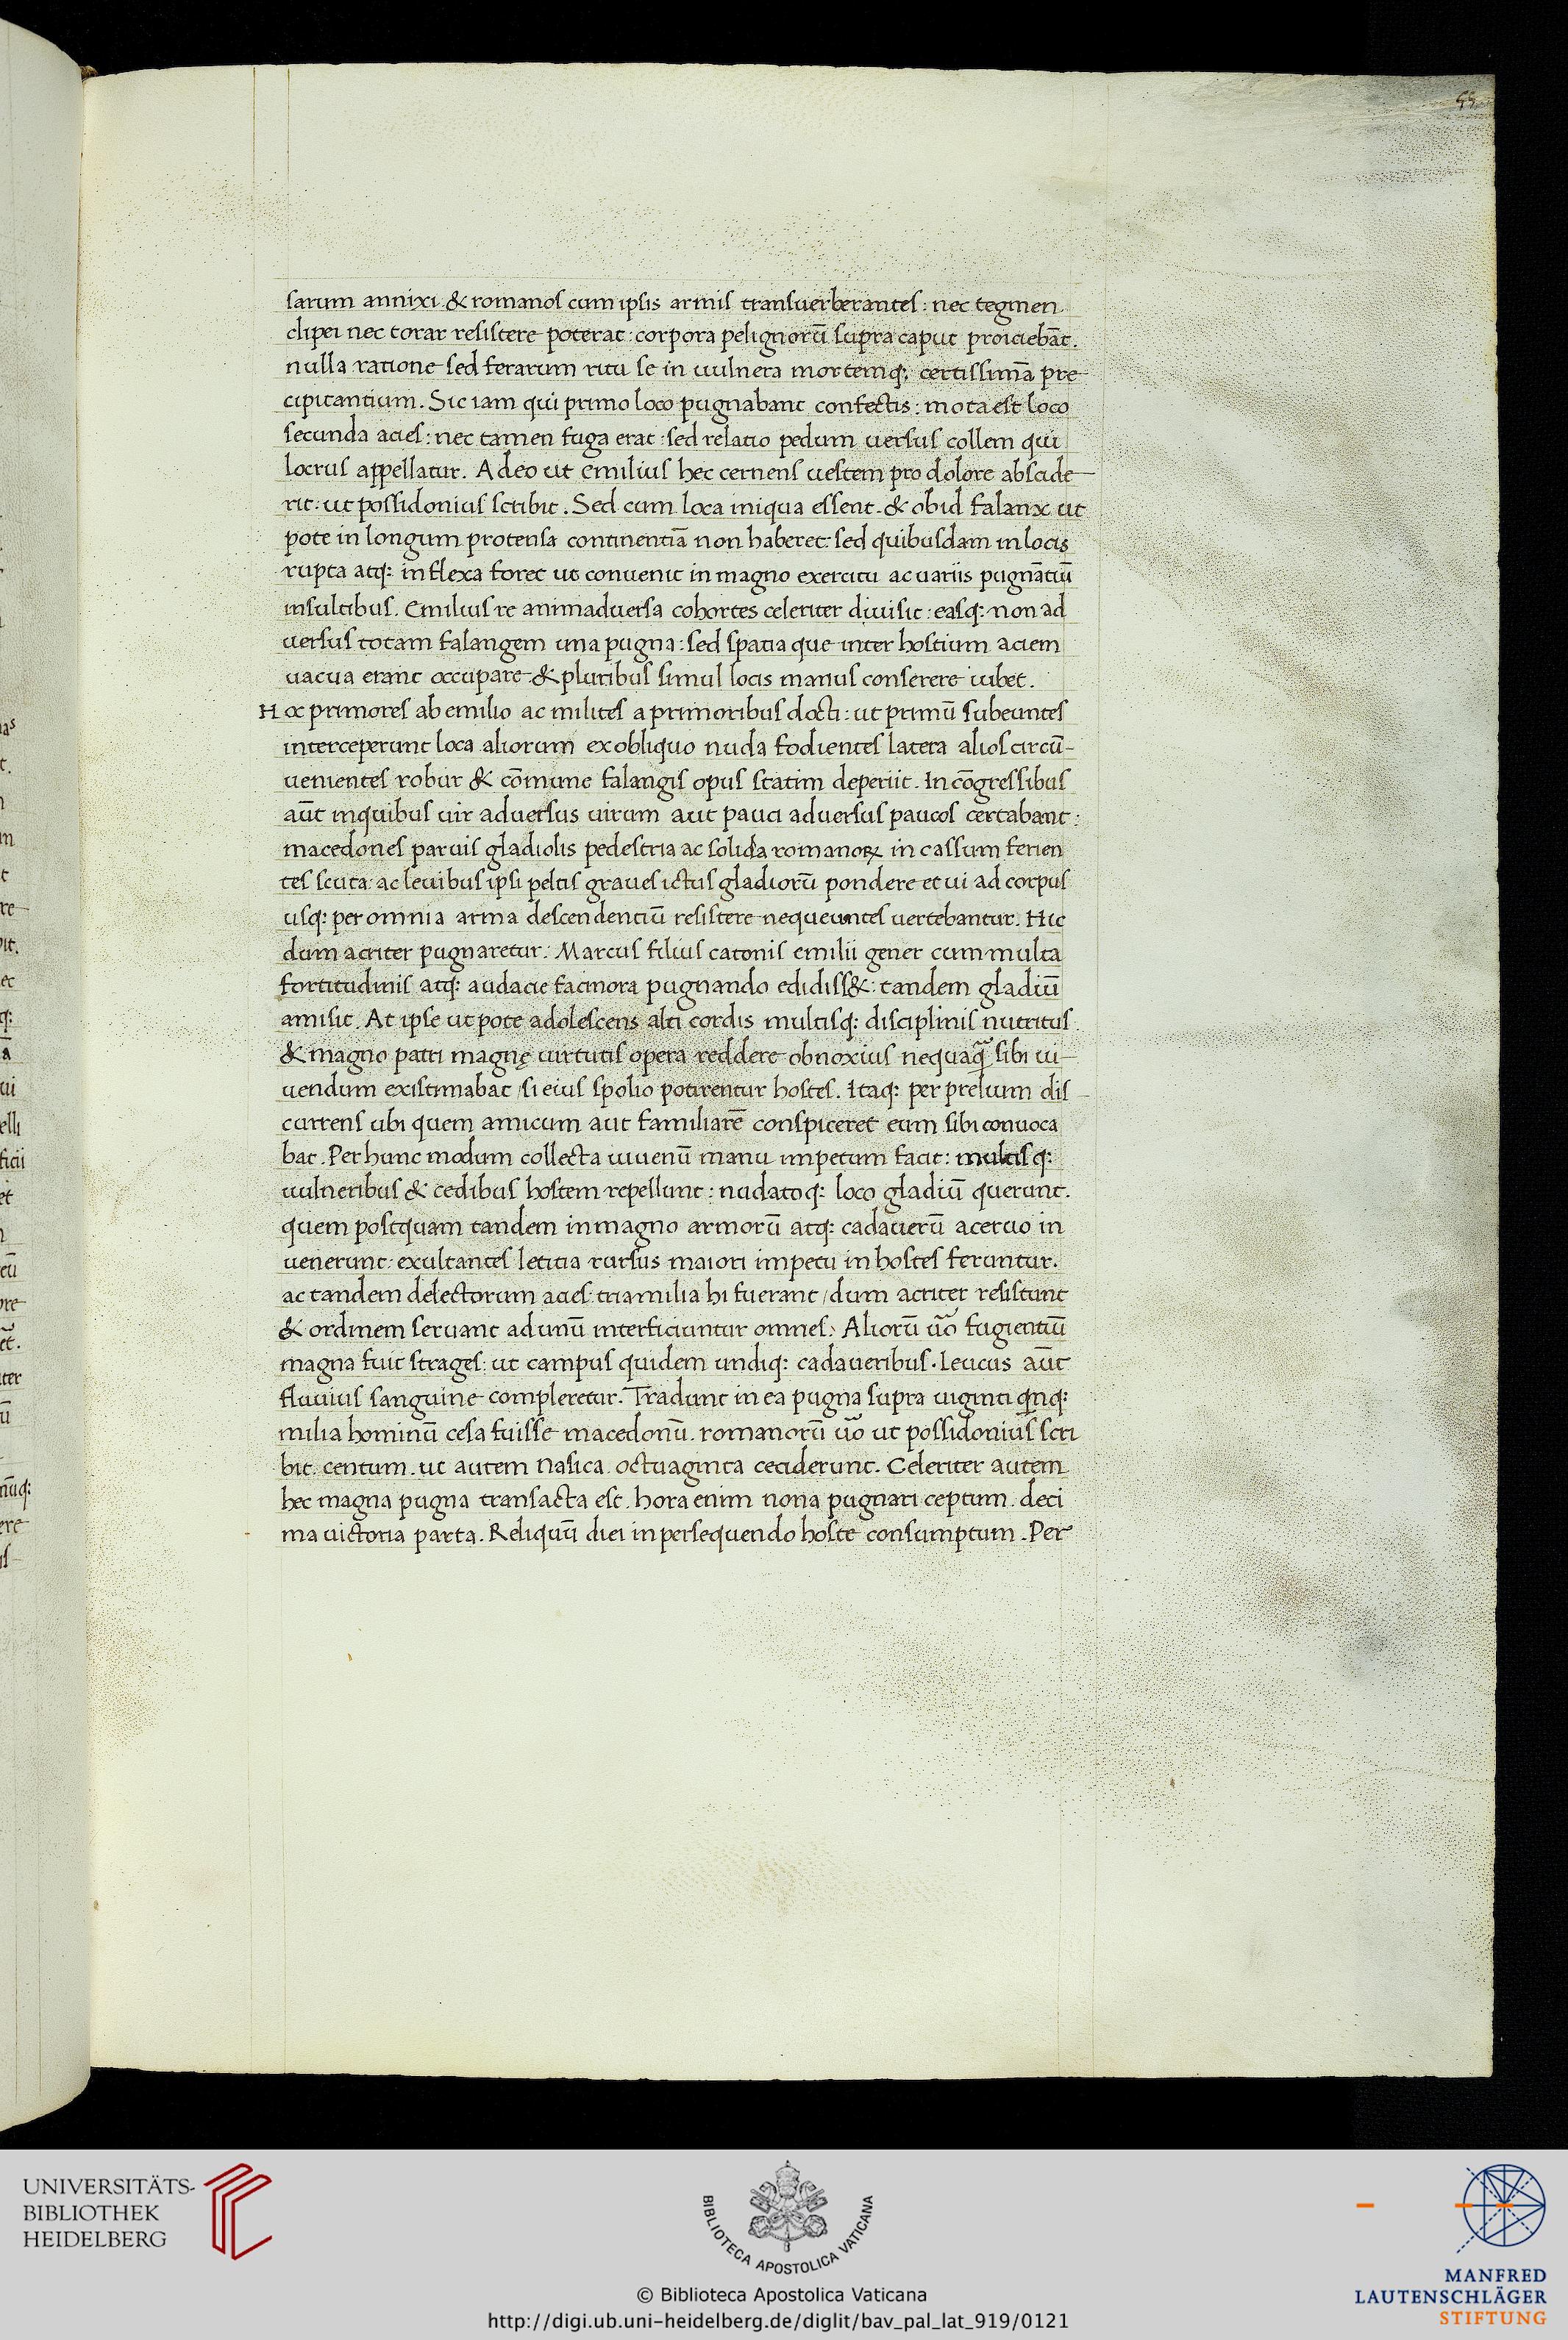 55
sarum annixi & romanos cum ipsis armis transuerberantes: nec tegmen
clipei nec torax resistere poterat: corpora pelignorū supra caput proiciebāt.
nulla ratione sed ferarum ritu se in uulnera mortemq; certissimā pre
cipitantium. Sic iam qui primo loco pugnabant confectis: mota est loco
secunda acies: nec tamen fuga erat: sed relatio pedum uersus collem qui
locrus appellatur. Adeo ut emilius hec cernens uestem pro dolore abscide
rit: ut possidonius scribit. Sed cum loca iniqua essent. & ob id falanx ut
pote in longum protensa continentiā non haberet: sed quibusdam in locis
rupta atq: inflexa foret ut conuenit in magno exercitu ac uariis pugnātiū
insultibus. Emilius re animaduersa cohortes celeriter diuisit: easq: non ad
uersus totam falangem una pugna: sed spatia que inter hostium aciem
uacua erant occupare & pluribus simul locis manus conserere iubet.
Hoc primores ab emilio ac milites a primoribus docti: ut primū subeuntes
interceperunt loca aliorum ex obliquo nuda fodientes latera alios circū-
uenientes robur & cōmune falangis opus statim deperiit. In cōgressibus
aūt in quibus uir aduersus uirum aut pauci aduersus paucos certabant:
macedones paruis gladiolis pedestria ac solida romanoꝝ in cassum ferien
tes scuta: ac leuibus ipsi peltis graues ictus gladiorū pondere et ui ad corpus
usq: per omnia arma descendentiū resistere nequeuntes uertebantur. Hic
dum acriter pugnaretur: Marcus filius catonis emilii gener cum multa
fortitudinis atq: audacie facinora pugnando edidiss&: tandem gladiū
amisit. At ipse ut pote adolescens alti cordis multisq: disciplinis nutritus
& magno patri magnę uirtutis opera reddere obnoxius nequaꝙ̄ sibi ui-
uendum existimabat / si eius spolio potirentur hostes. Itaq: per prelium dis
currens ubi quem amicum aut familiarē conspiceret eum sibi conuoca
bat. Per hunc modum collecta iuuenū manu impetum facit: multisq:
uulneribus & cedibus hostem repellunt: nudatoq: loco gladiū querunt.
quem postquam tandem in magno armorū atq: cadauerū aceruo in
uenerunt: exultantes letitia rursus maiori impetu in hostes feruntur.
ac tandem delectorum acies: tria milia hi fuerant / dum acriter resistunt
& ordinem seruant ad unū interficiuntur omnes: Aliorū ūo fugientiū
magna fuit strages: ut campus quidem undiq: cadaueribus. leucus aūt
fluuius sanguine compleretur. Tradunt in ea pugna supra uiginti qnq:
milia hominū cesa fuisse macedonū. romanorū ūo ut possidonius scri
bit. centum. ut autem nasica. octuaginta ceciderunt. Celeriter autem
hec magna pugna transacta est. hora enim nona pugnari ceptum. deci
ma uictoria parta. Reliquū diei in persequendo hoste consumptum. Per
UNIVERSITÄTS-
BIBLIOTHEK
HEIDELBERG
BIBLIOTECA APOSTOLICA VATICANA
© Biblioteca Apostolica Vaticana
http://digi.ub.uni-heidelberg.de/diglit/bav_pal_lat_919/0121
MANFRED
LAUTENSCHLÄGER
STIFTUNG